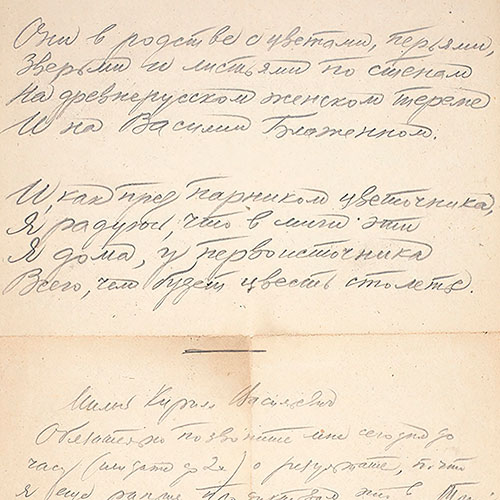 Они в родстве с цветами, перьями,
Зверьми и листьями по стенам
На древнерусском женском тереме
И на Василии Блаженном.
И, как пред парником цветочника,
Я радуюсь, что в миги эти
Я дома, у первоисточника
Всего, чем будет цвесть столетье.
Милый Кирилл Васильевич
Обязательно позвоните мне сегодня до
часу (или даже до 2х) о результате,
я еще раньше